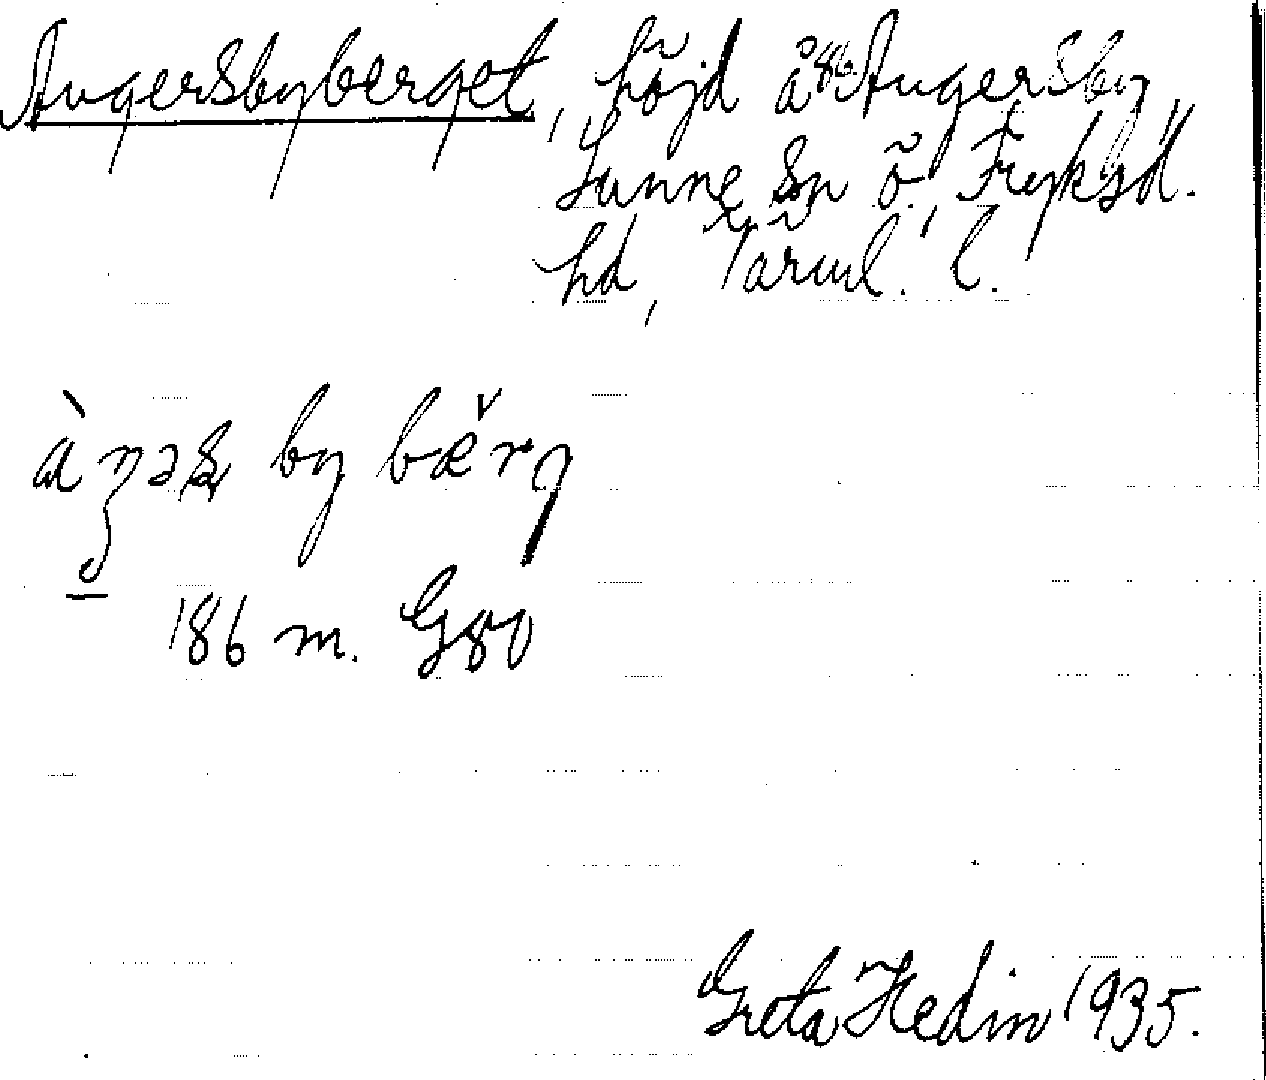 Augersbyberget, höjd å 86 Augersby
Sunne Sn Ö. Fryksd.
hd, Värml. l.
à ŋəʂ by bæ̌rg
186 m. G80
Greta Hedin 1935.